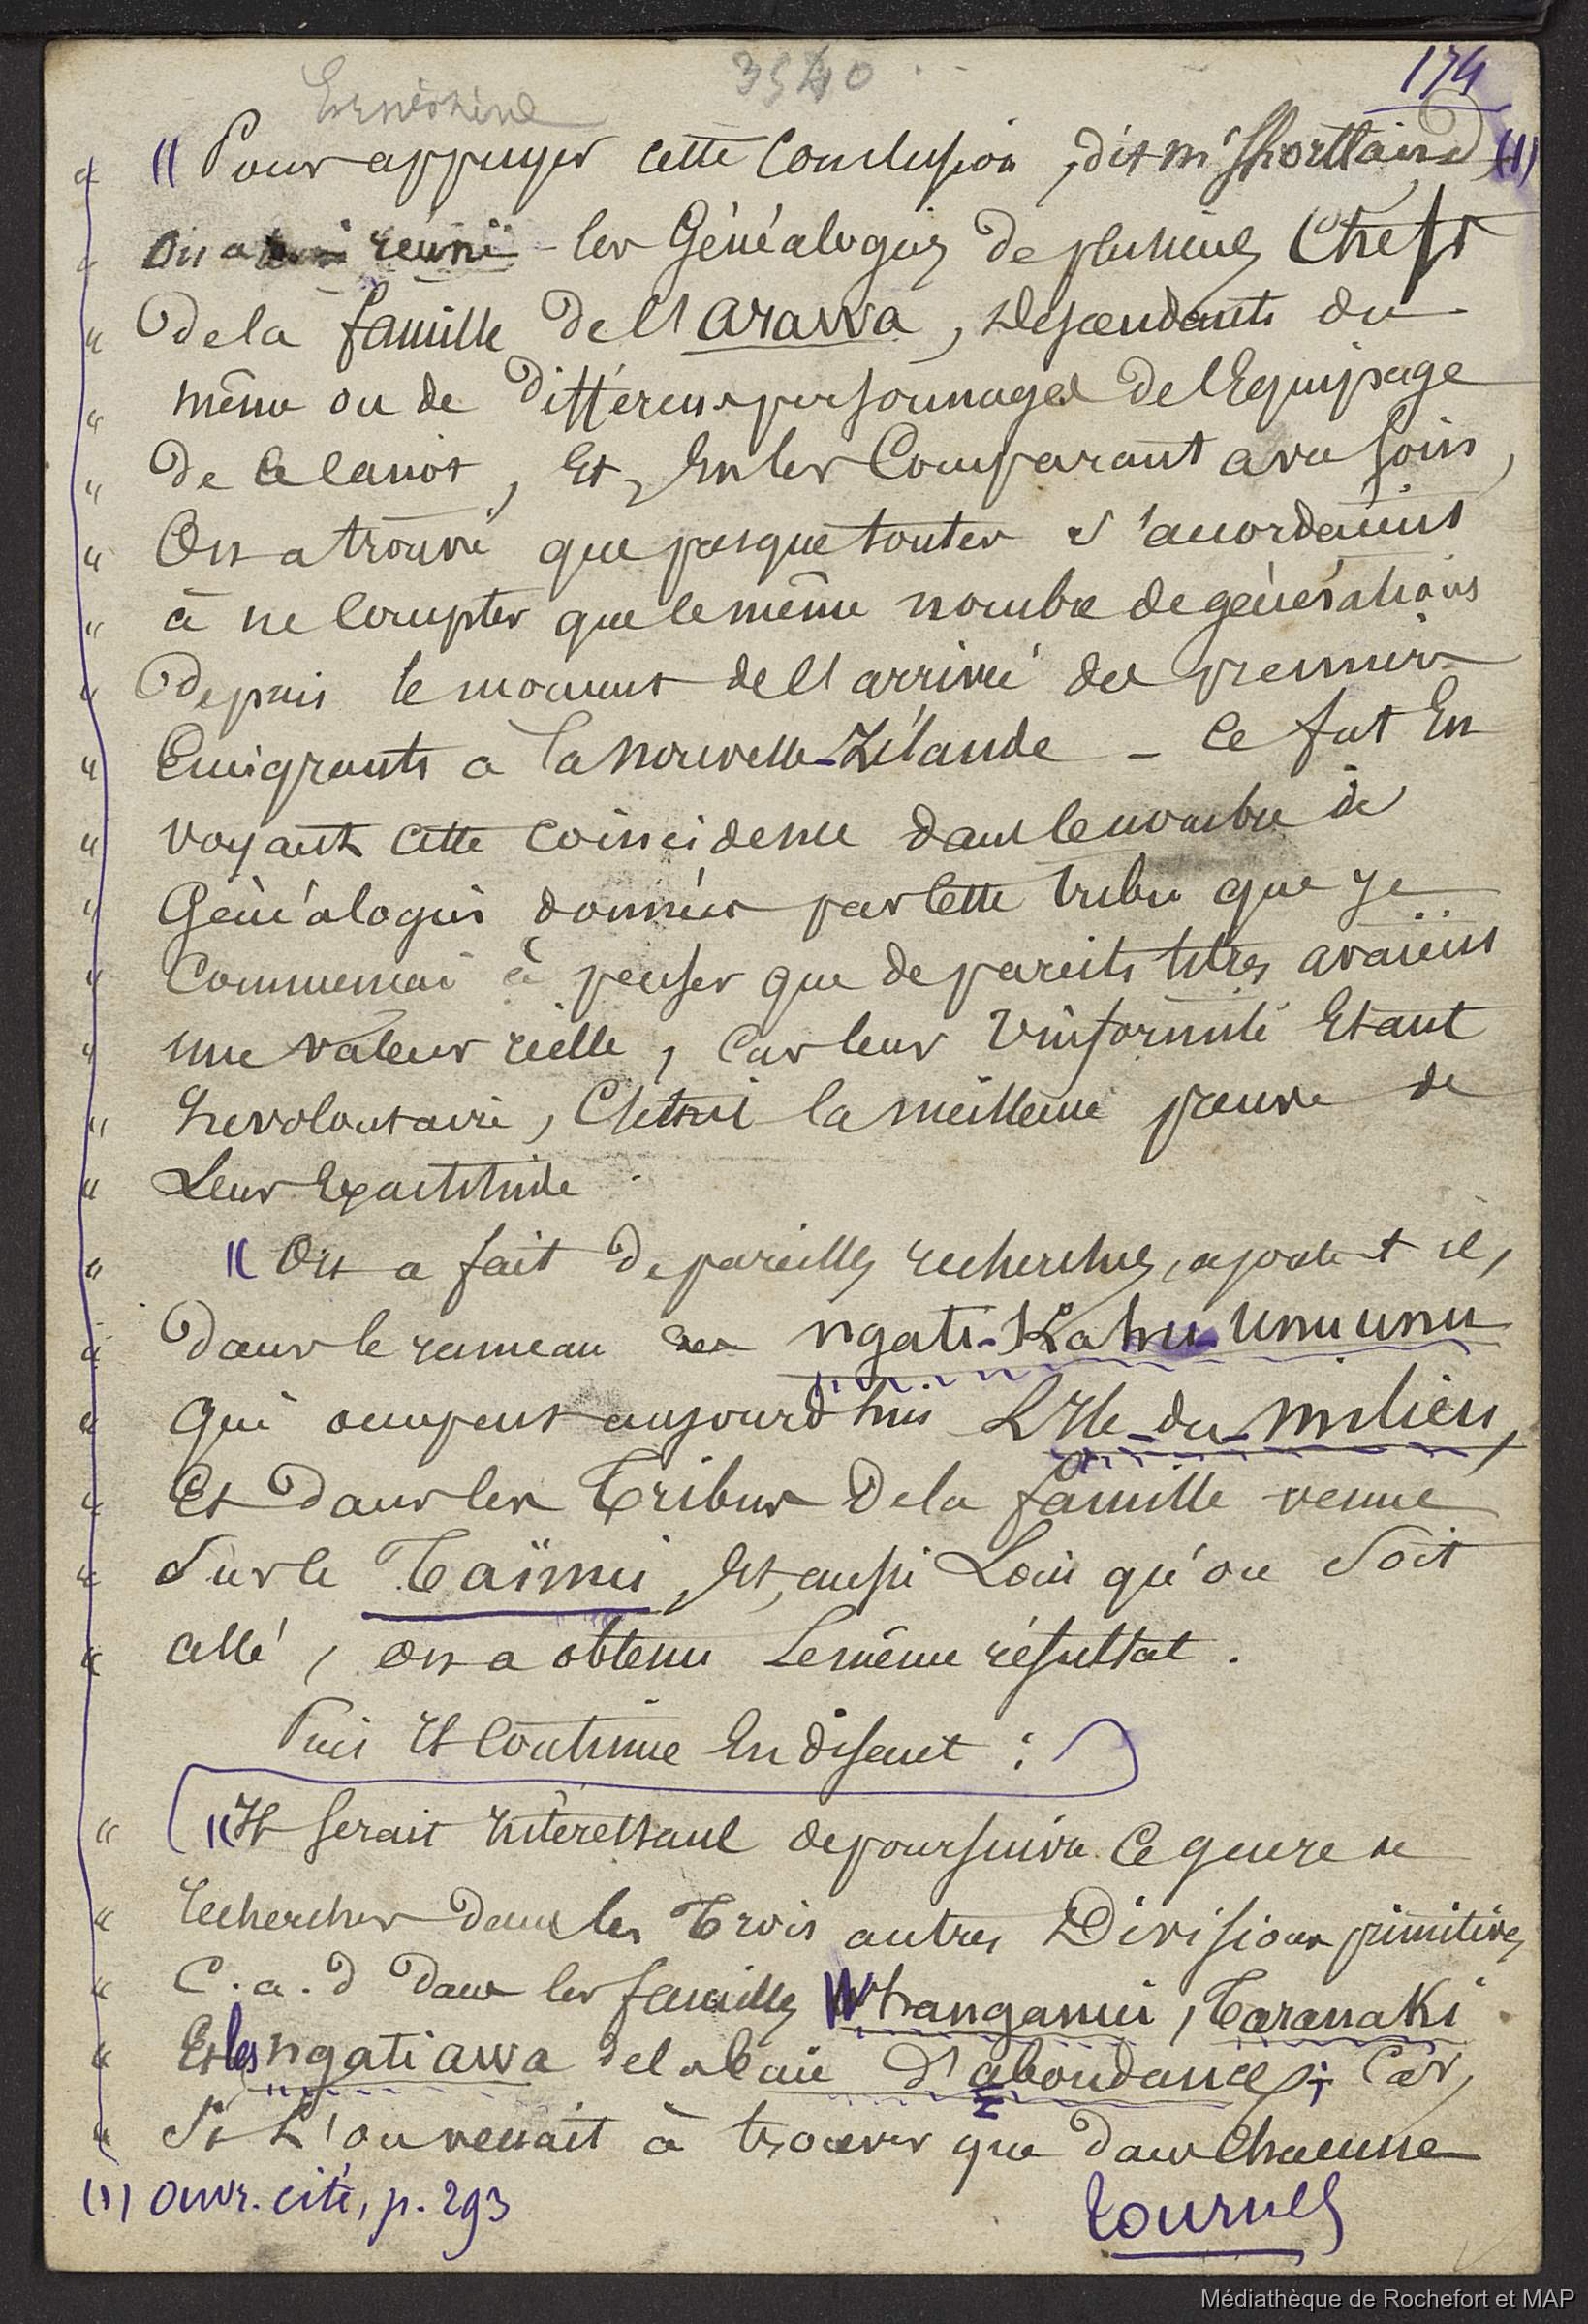 3540
174
Ernestine
" " Pour appuyer cette conclusion, dit mr Shortland, (1)
" on a réuni les Généalogies de plusieurs Chefs
" de la famille de l'arawa, descendants du
" même ou de différens personnages de l'Equipage
" de ce canot, et, en les comparant avec soin,
" On a trouvé que presque toutes s'accordaient
" à ne compter que le même nombre de générations
" depuis le moment de l'arrivée des premiers
" Emigrants a la nouvelle-Zélande - Ce fut En
" voyant cette coincidence dans le nombre de
" Généalogies données par cette tribu que je
" Commençai à penser que de pareils titres avaient
" une valeur réelle, car leur Uniformité Etant
" Involontaire, C'était la meilleure preuve de
" Leur Exactitude.
" " On a fait de pareilles recherches, ajoute t il,
" dans le rameau des ngati-Kahu-Unuunu
" qui occupent aujourd'hui L'Ile-du-milieu,
" Et dans les Tribus de la famille venue
" Sur le Taïnui, Et, aussi Loin qu'on soit
" allé, on a obtenu le même résultat.
Puis Il Continue En disant :
" " Il serait intéressant de poursuivre Ce genre de
" recherches dans les Trois autres Divisions primitives
" C.a.d dans les familles Whanganui, Taranaki
" Et les ngatiawa de la baie d'abondance; Car,
" Si L'on venait à trouver que dans Chacune
(1) ouvr. cité, p. 293
tournez
Médiathèque de Rochefort et MAP